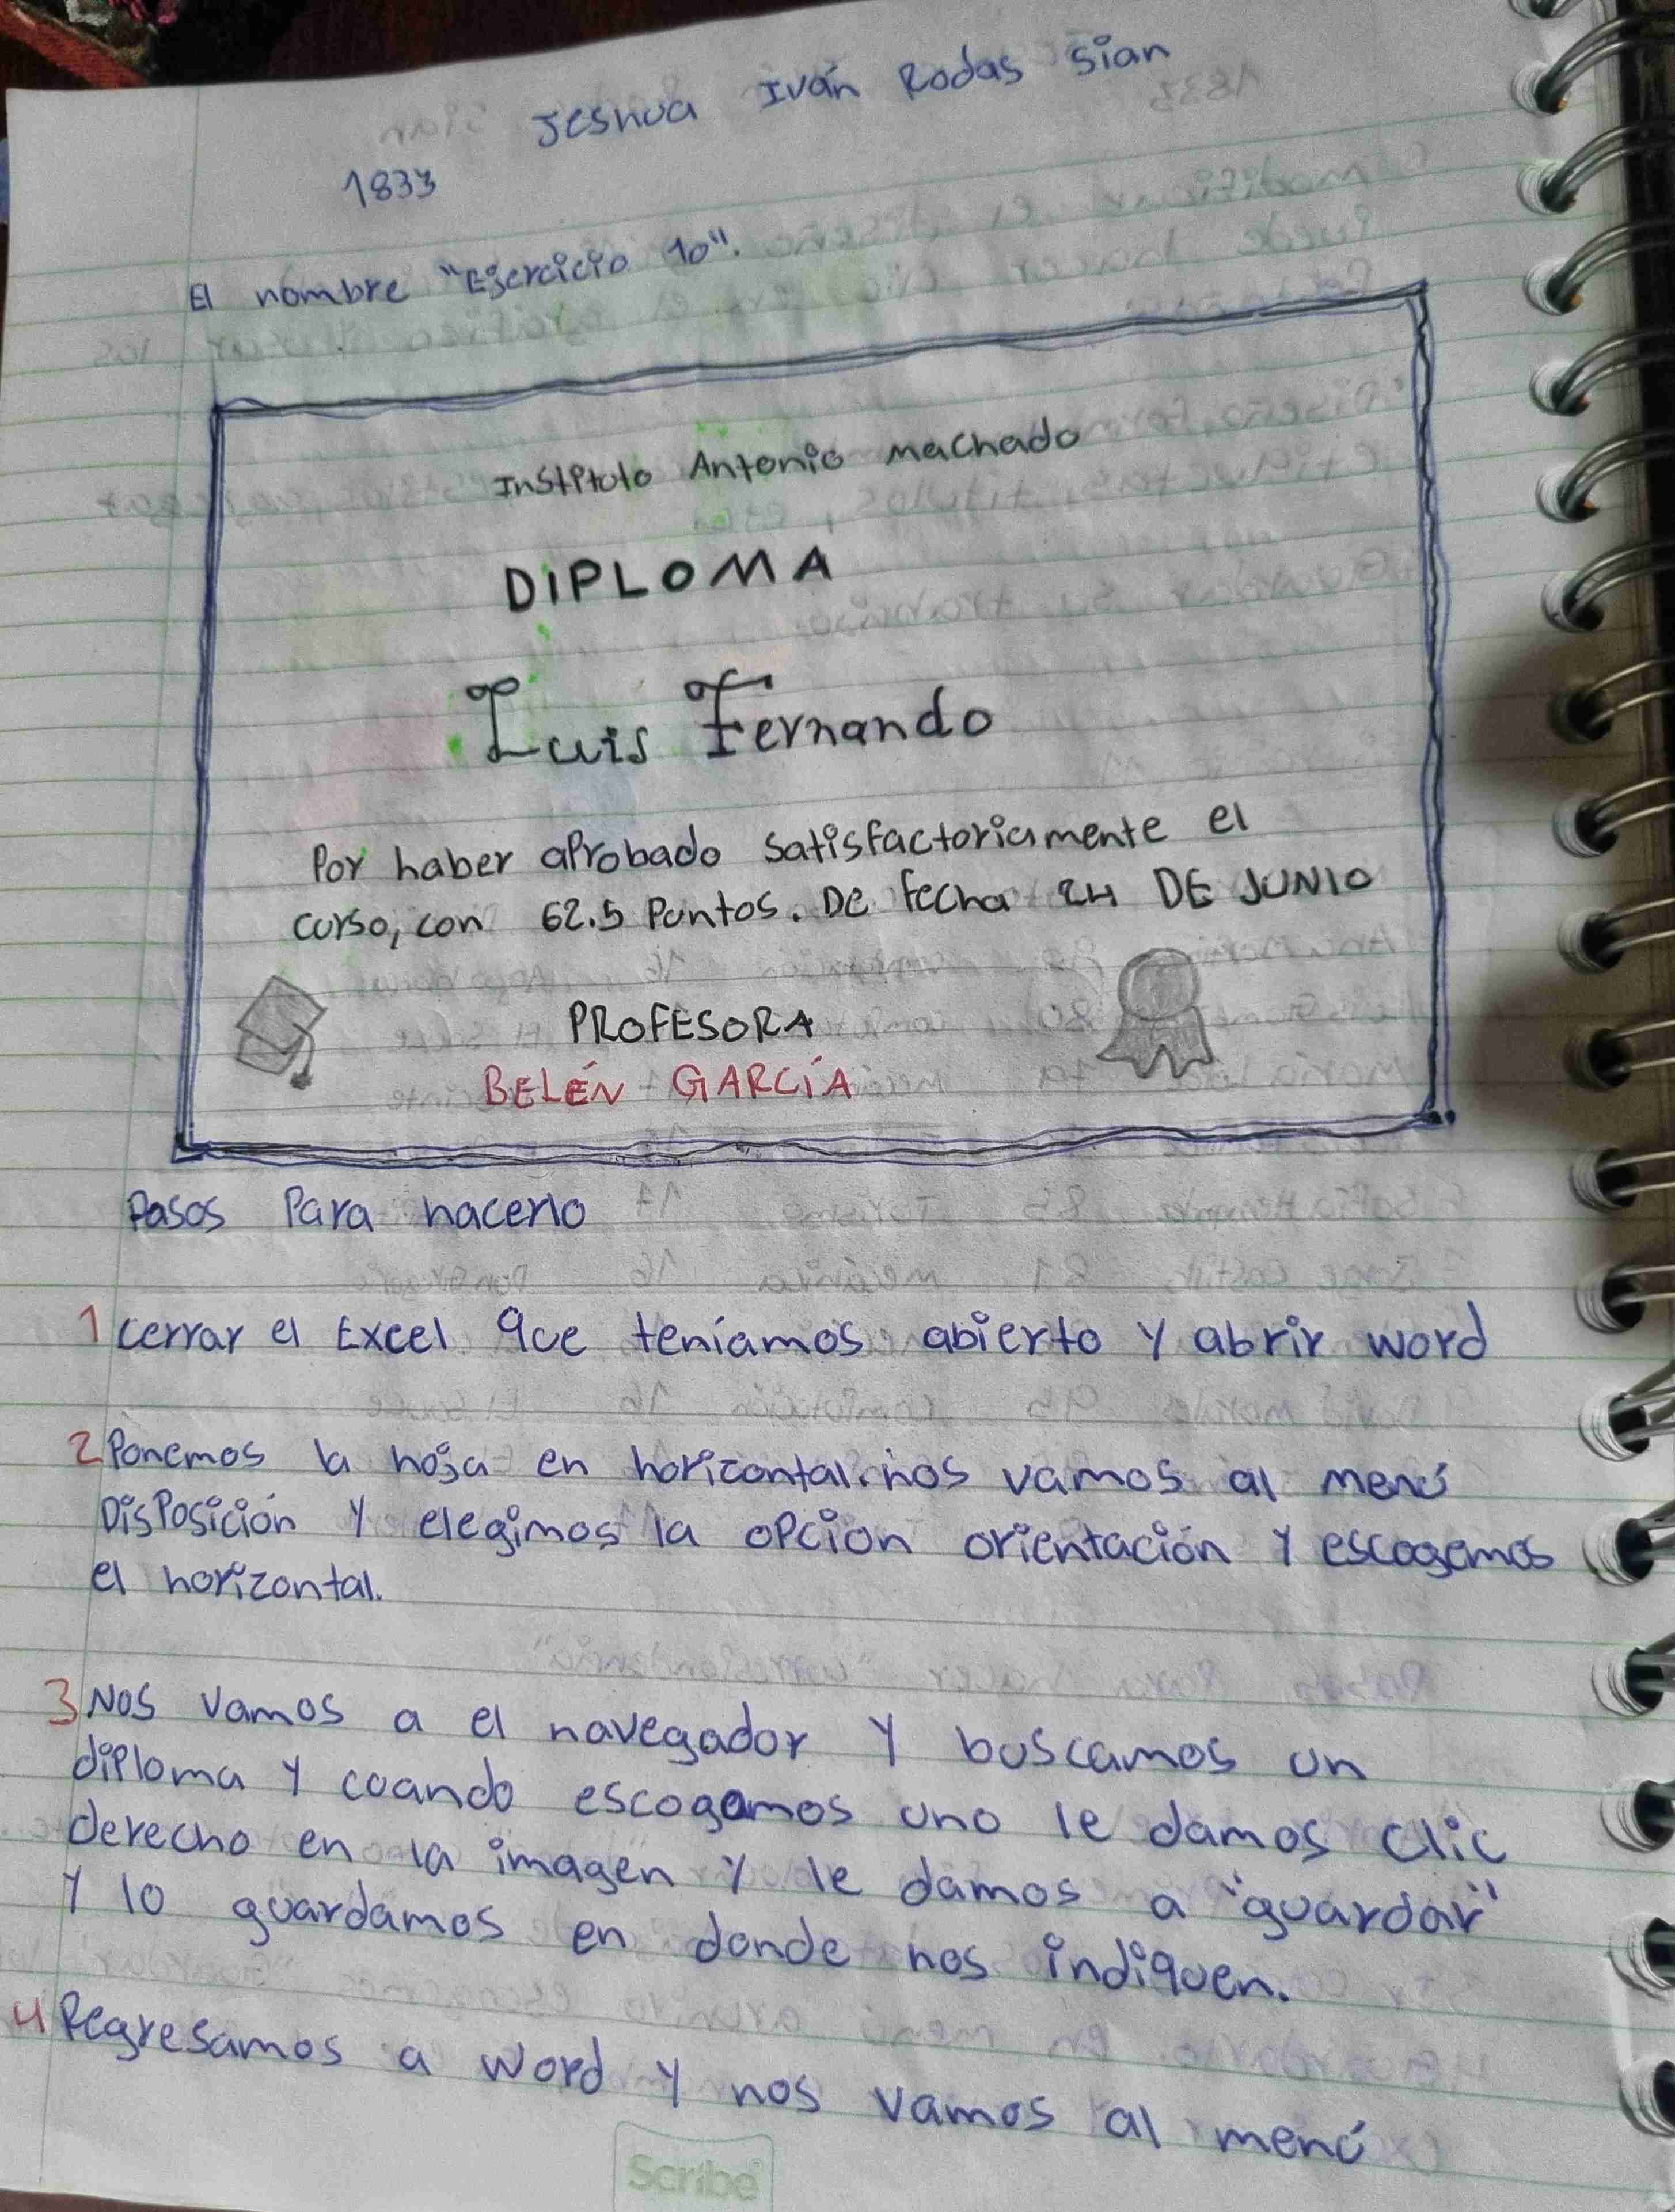 Jeshua Iván Rodas Sian
1833
El nombre "Ejercicio 10".
Instituto Antonio Machado
DIPLOMA
Luis Fernando
Por haber aprobado satisfactoriamente el
curso, con 62.5 Puntos. De fecha 24 DE JUNIO
PROFESORA
BELÉN GARCÍA
Pasos Para hacerlo
1 cerrar el Excel que teníamos abierto y abrir word
2 Ponemos la hoja en horizontal. nos vamos al menú
Disposición y elegimos la opcion orientación y escogemos
el horizontal.
3 Nos vamos a el navegador y buscamos un
diploma y cuando escogamos uno le damos clic
derecho en la imagen y le damos a "guardar"
y lo guardamos en donde nos indiquen.
4 Regresamos a word y nos vamos al menú
Scribe